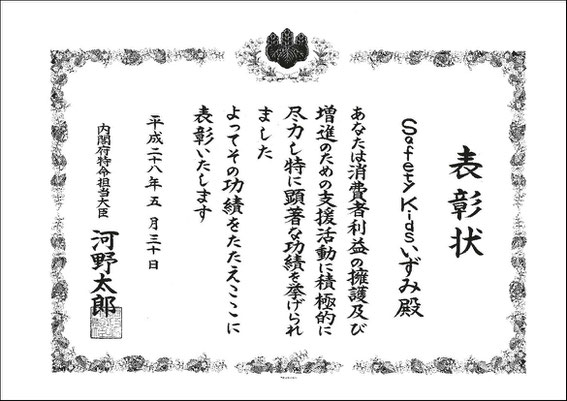 表彰状
Safety Kidsいずみ殿
あなたは消費者利益の擁護及び
増進のための支援活動に積極的に
尽力し特に顕著な功績を挙げられ
ました
よってその功績をたたえここに
表彰いたします
平成二十八年五月三十日
内閣府特命担当大臣
河野太郎